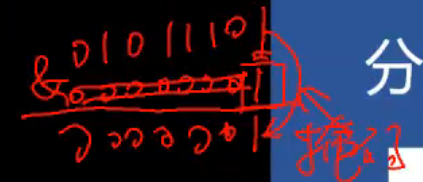 01011101
分
& 00000001
00000001
掩码